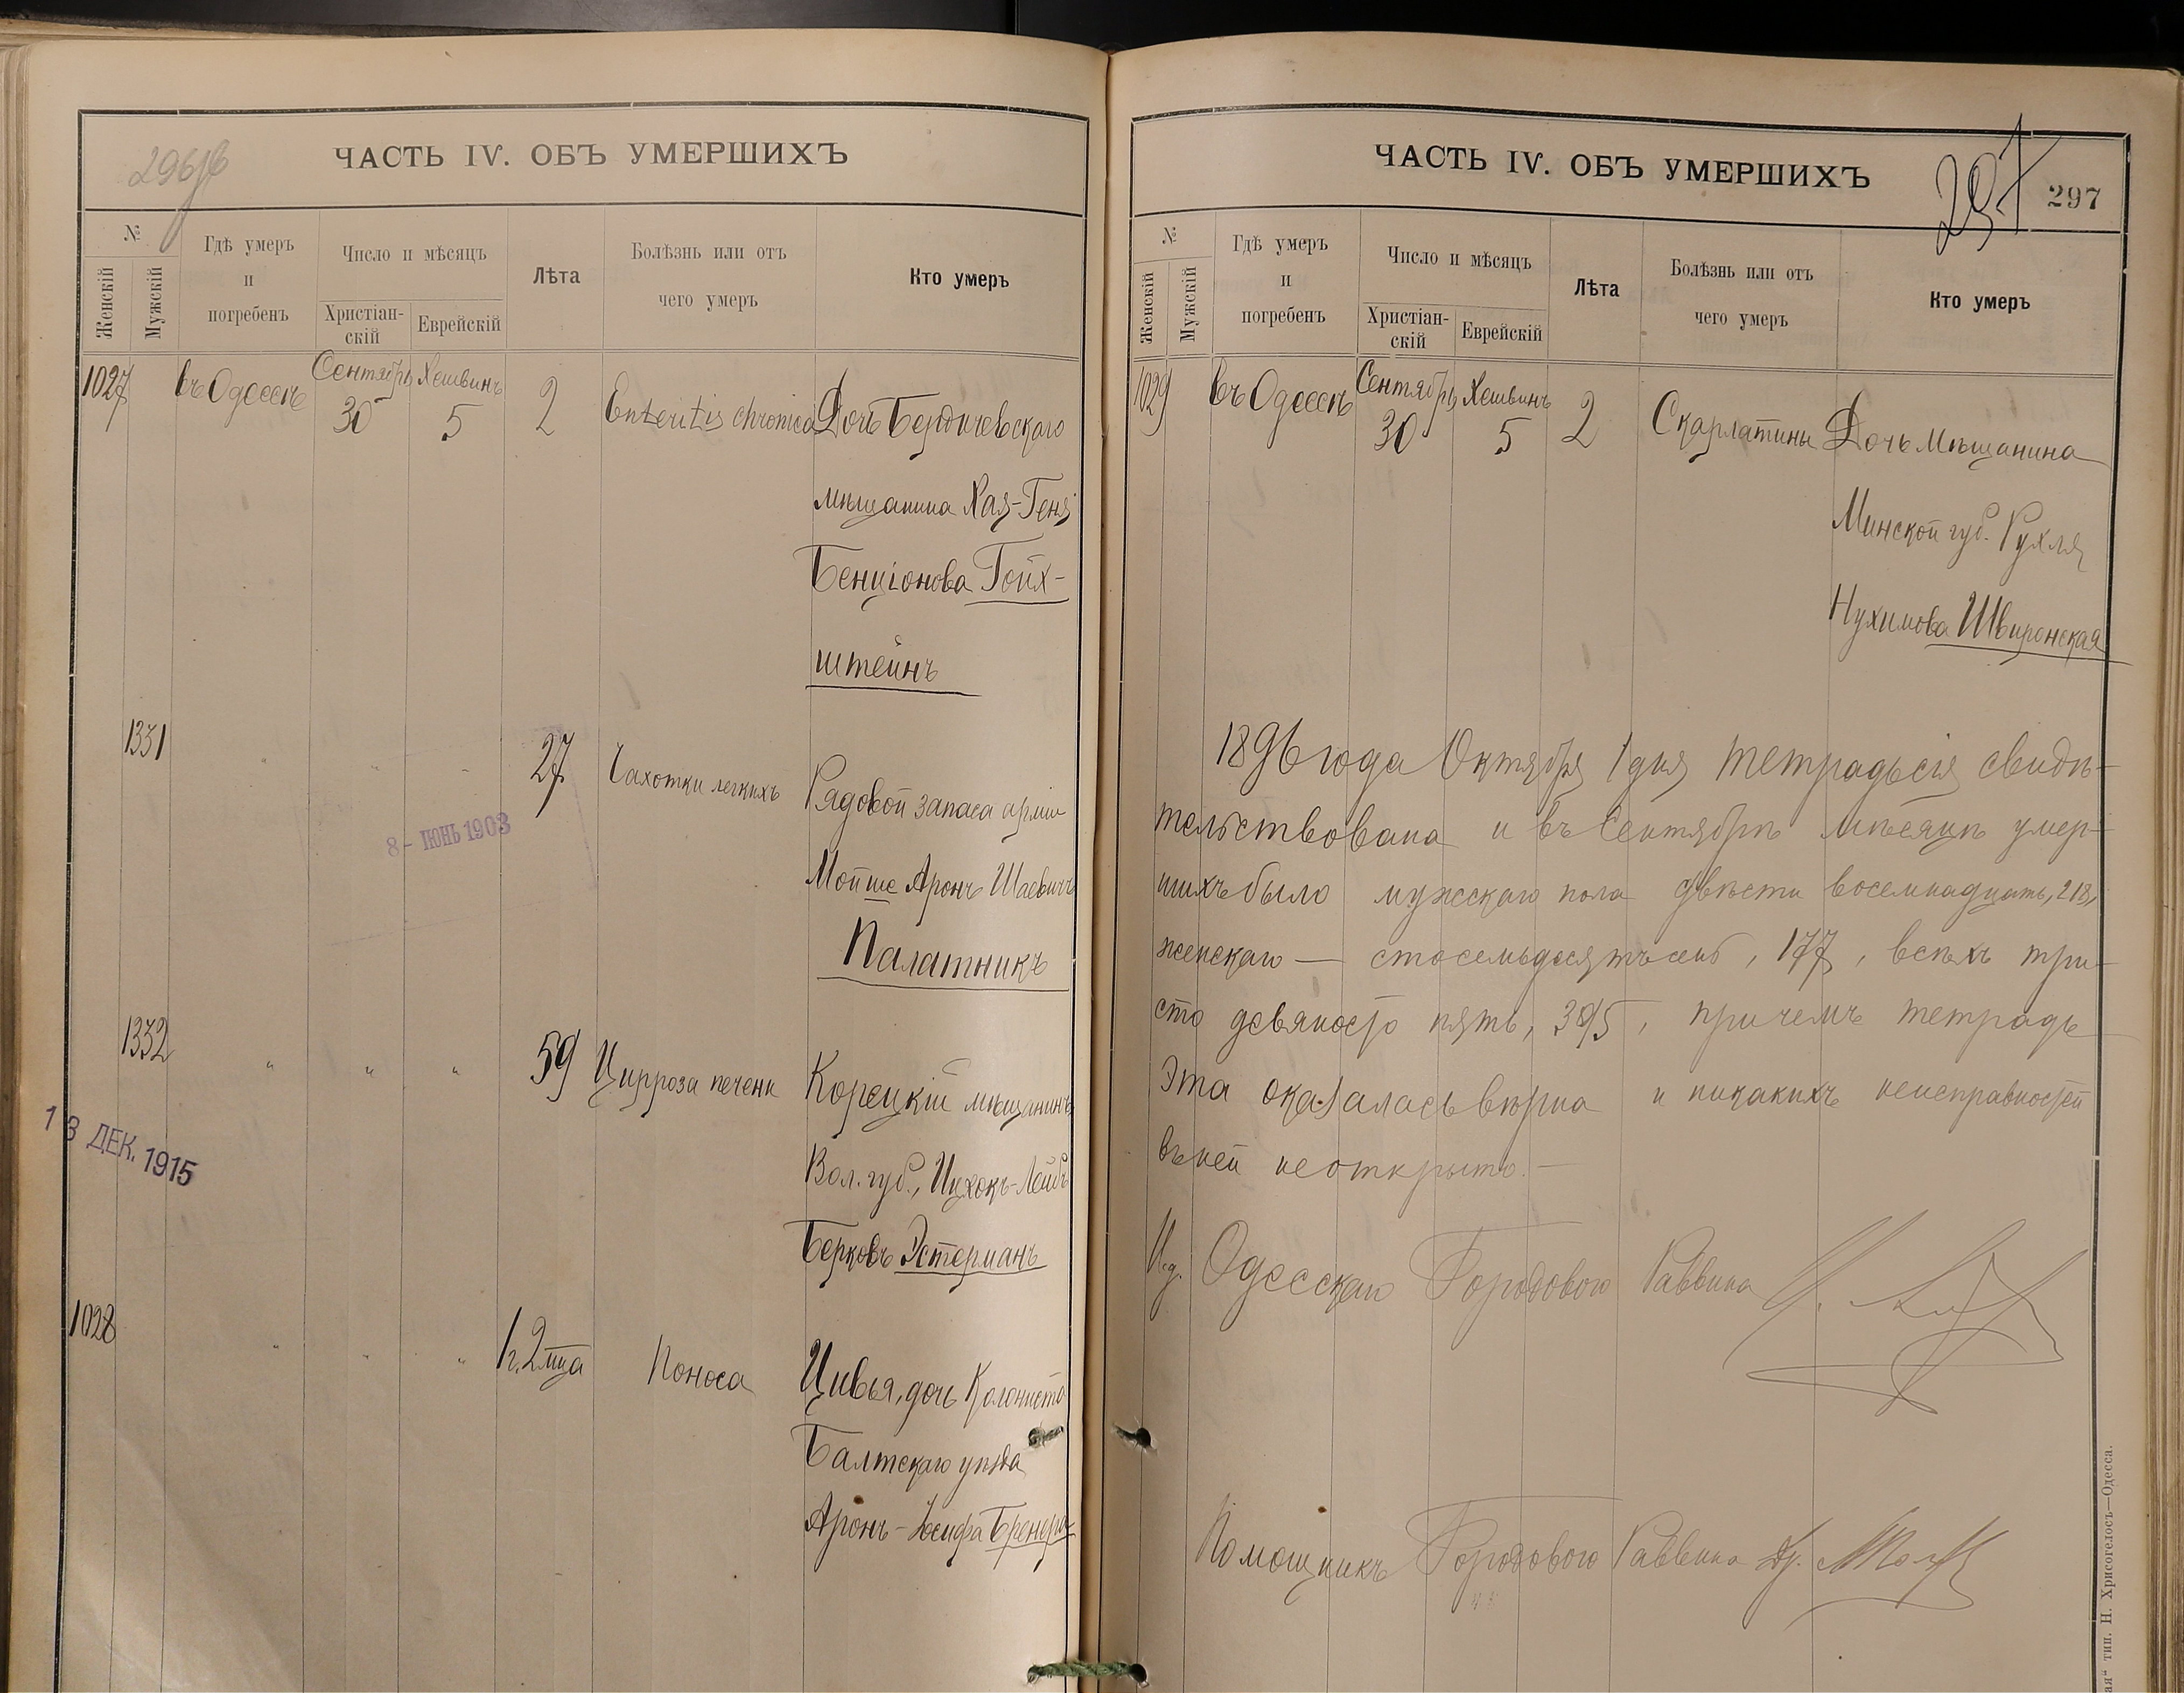 296 об
ЧАСТЬ IV. ОБЪ УМЕРШИХЪ
№
Женскій
Мужскій
Гдѣ умеръ
и
погребенъ
Число и мѣсяцъ
Христіан-
скій
Еврейскій
Лѣта
Болѣзнь или отъ
чего умеръ
Кто умеръ
1027 въ Одессѣ Сентябрь 30 Хешвинъ 5 2 Enteritis chronica Дочь Бердичевскаго
мѣщанина Хая-Геня
Бенціонова Гойх-
штейнъ
1331 " " " 27 Чахотки легкихъ Рядовой запаса арміи
Мойше Аронъ Шаевичъ
Палатникъ
8 - ІЮНЬ 1903
1332 " " " 59 Цирроза печени Корецкій мѣщанинъ
Вол. губ., Ицхокъ-Лейбъ
Берковъ Эстерманъ
13 ДЕК. 1915
1028 " " " 1 г. 2 мца Поноса Цивья, дочь Колониста
Балтскаго уѣзда
Аронъ-Іосифа Бренеръ
ЧАСТЬ IV. ОБЪ УМЕРШИХЪ
297
297
№
Женскій
Мужскій
Гдѣ умеръ
и
погребенъ
Число и мѣсяцъ
Христіан-
скій
Еврейскій
Лѣта
Болѣзнь или отъ
чего умеръ
Кто умеръ
1029 въ Одессѣ Сентябрь 30 Хешвинъ 5 2 Скарлатины Дочь мѣщанина
Минской губ. Рухля
Нухимова Швиронская
1896 года Октября 1 дня тетрадь сія свидѣ-
тельствована и въ Сентябрѣ мѣсяцѣ умер-
шихъ было мужскаго пола двѣсти восемнадцать, 218,
женскаго — сто семьдесятъ семь, 177, всѣхъ три-
сто девяносто пять, 395, причемъ тетрадь
эта оказалась вѣрна и никакихъ неисправностей
въ ней не открыто. —
И.д. Одесскаго Городового Раввина
Помощникъ Городового Раввина Др.
тип. Н. Хрисогелосъ—Одесса.